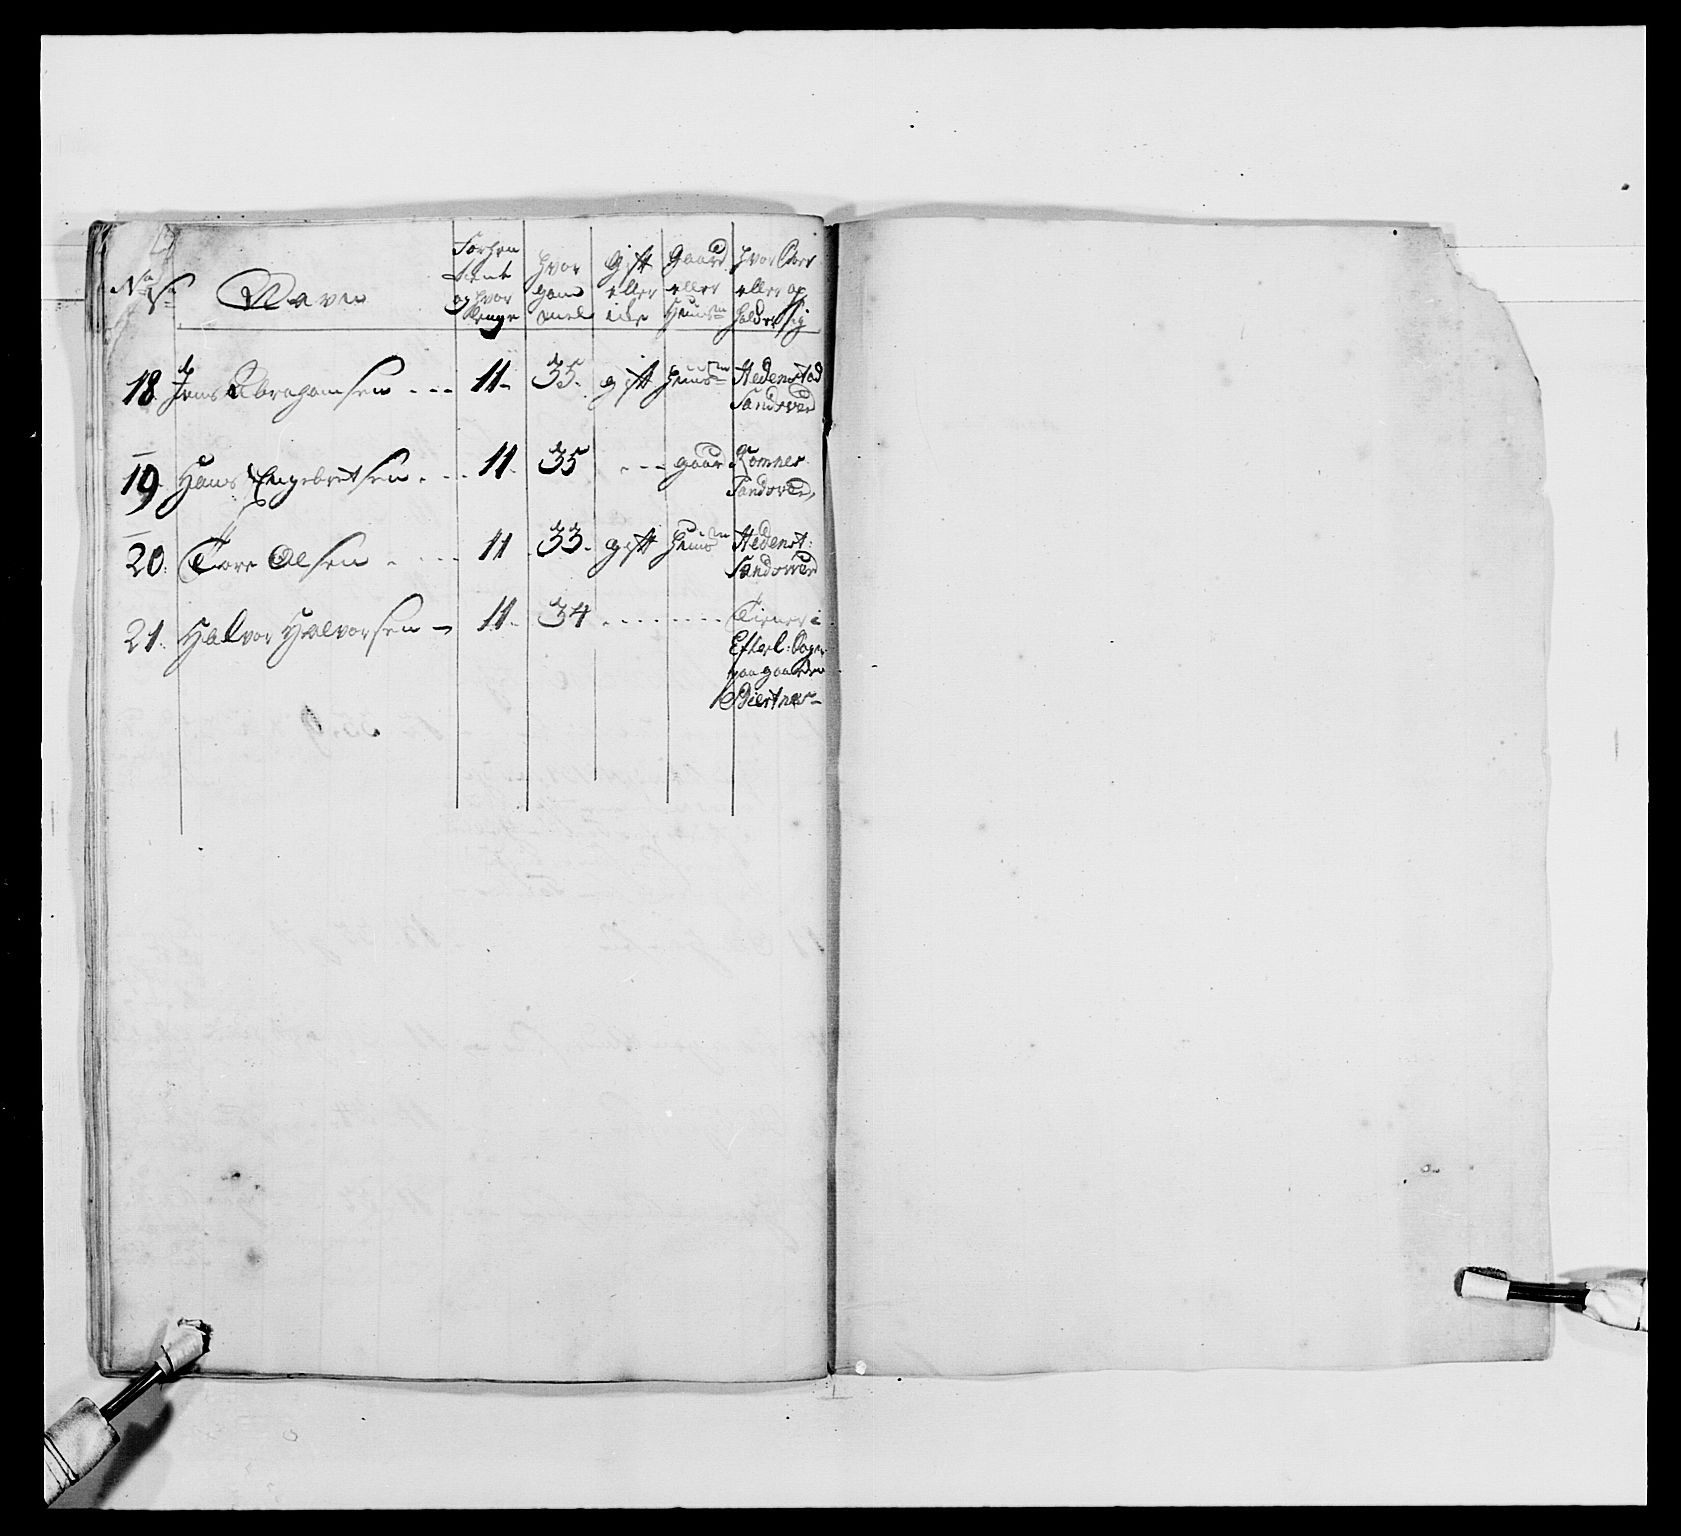 No Navn
Forhen tient og hvor lenge
hvor gammel
Gift eller icke
Gaard eller Huusm
hvor Boer eller op holder sig
18. Jens Abrahamsen - - - 11 - 35. gift huusm Hedenstad
Sandsverd
19. Hans Engebretsen - - - 11. 35 - - - gaard Komnes
Sandsverd
20. Tore Olsen - - - 11. 33. gift huusm Hedenst:
Sandsverd
21. Halvor Halvorsen - 11. 34 - - - - - - Tiener i
Efterl: Sogn
paa gaarden
Biertnes -